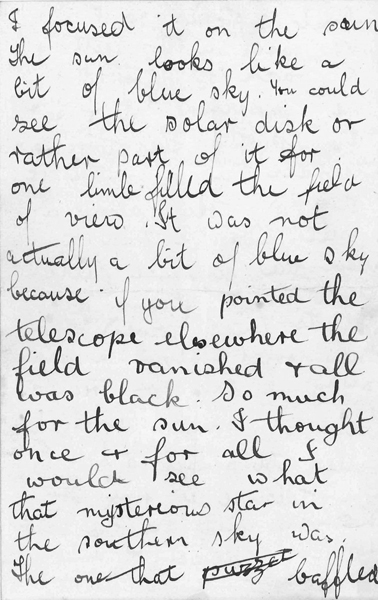 I focused it on the sun
The sun looks like a
bit of blue sky. You could
see the solar disk or
rather part of it for
one limb filled the field
of view. It was not
actually a bit of blue sky
because if you pointed the
telescope elsewhere the
field vanished & all
was black. So much
for the sun. I thought
once & for all I
would see what
that mysterious star in
the southern sky was.
The one that baffled